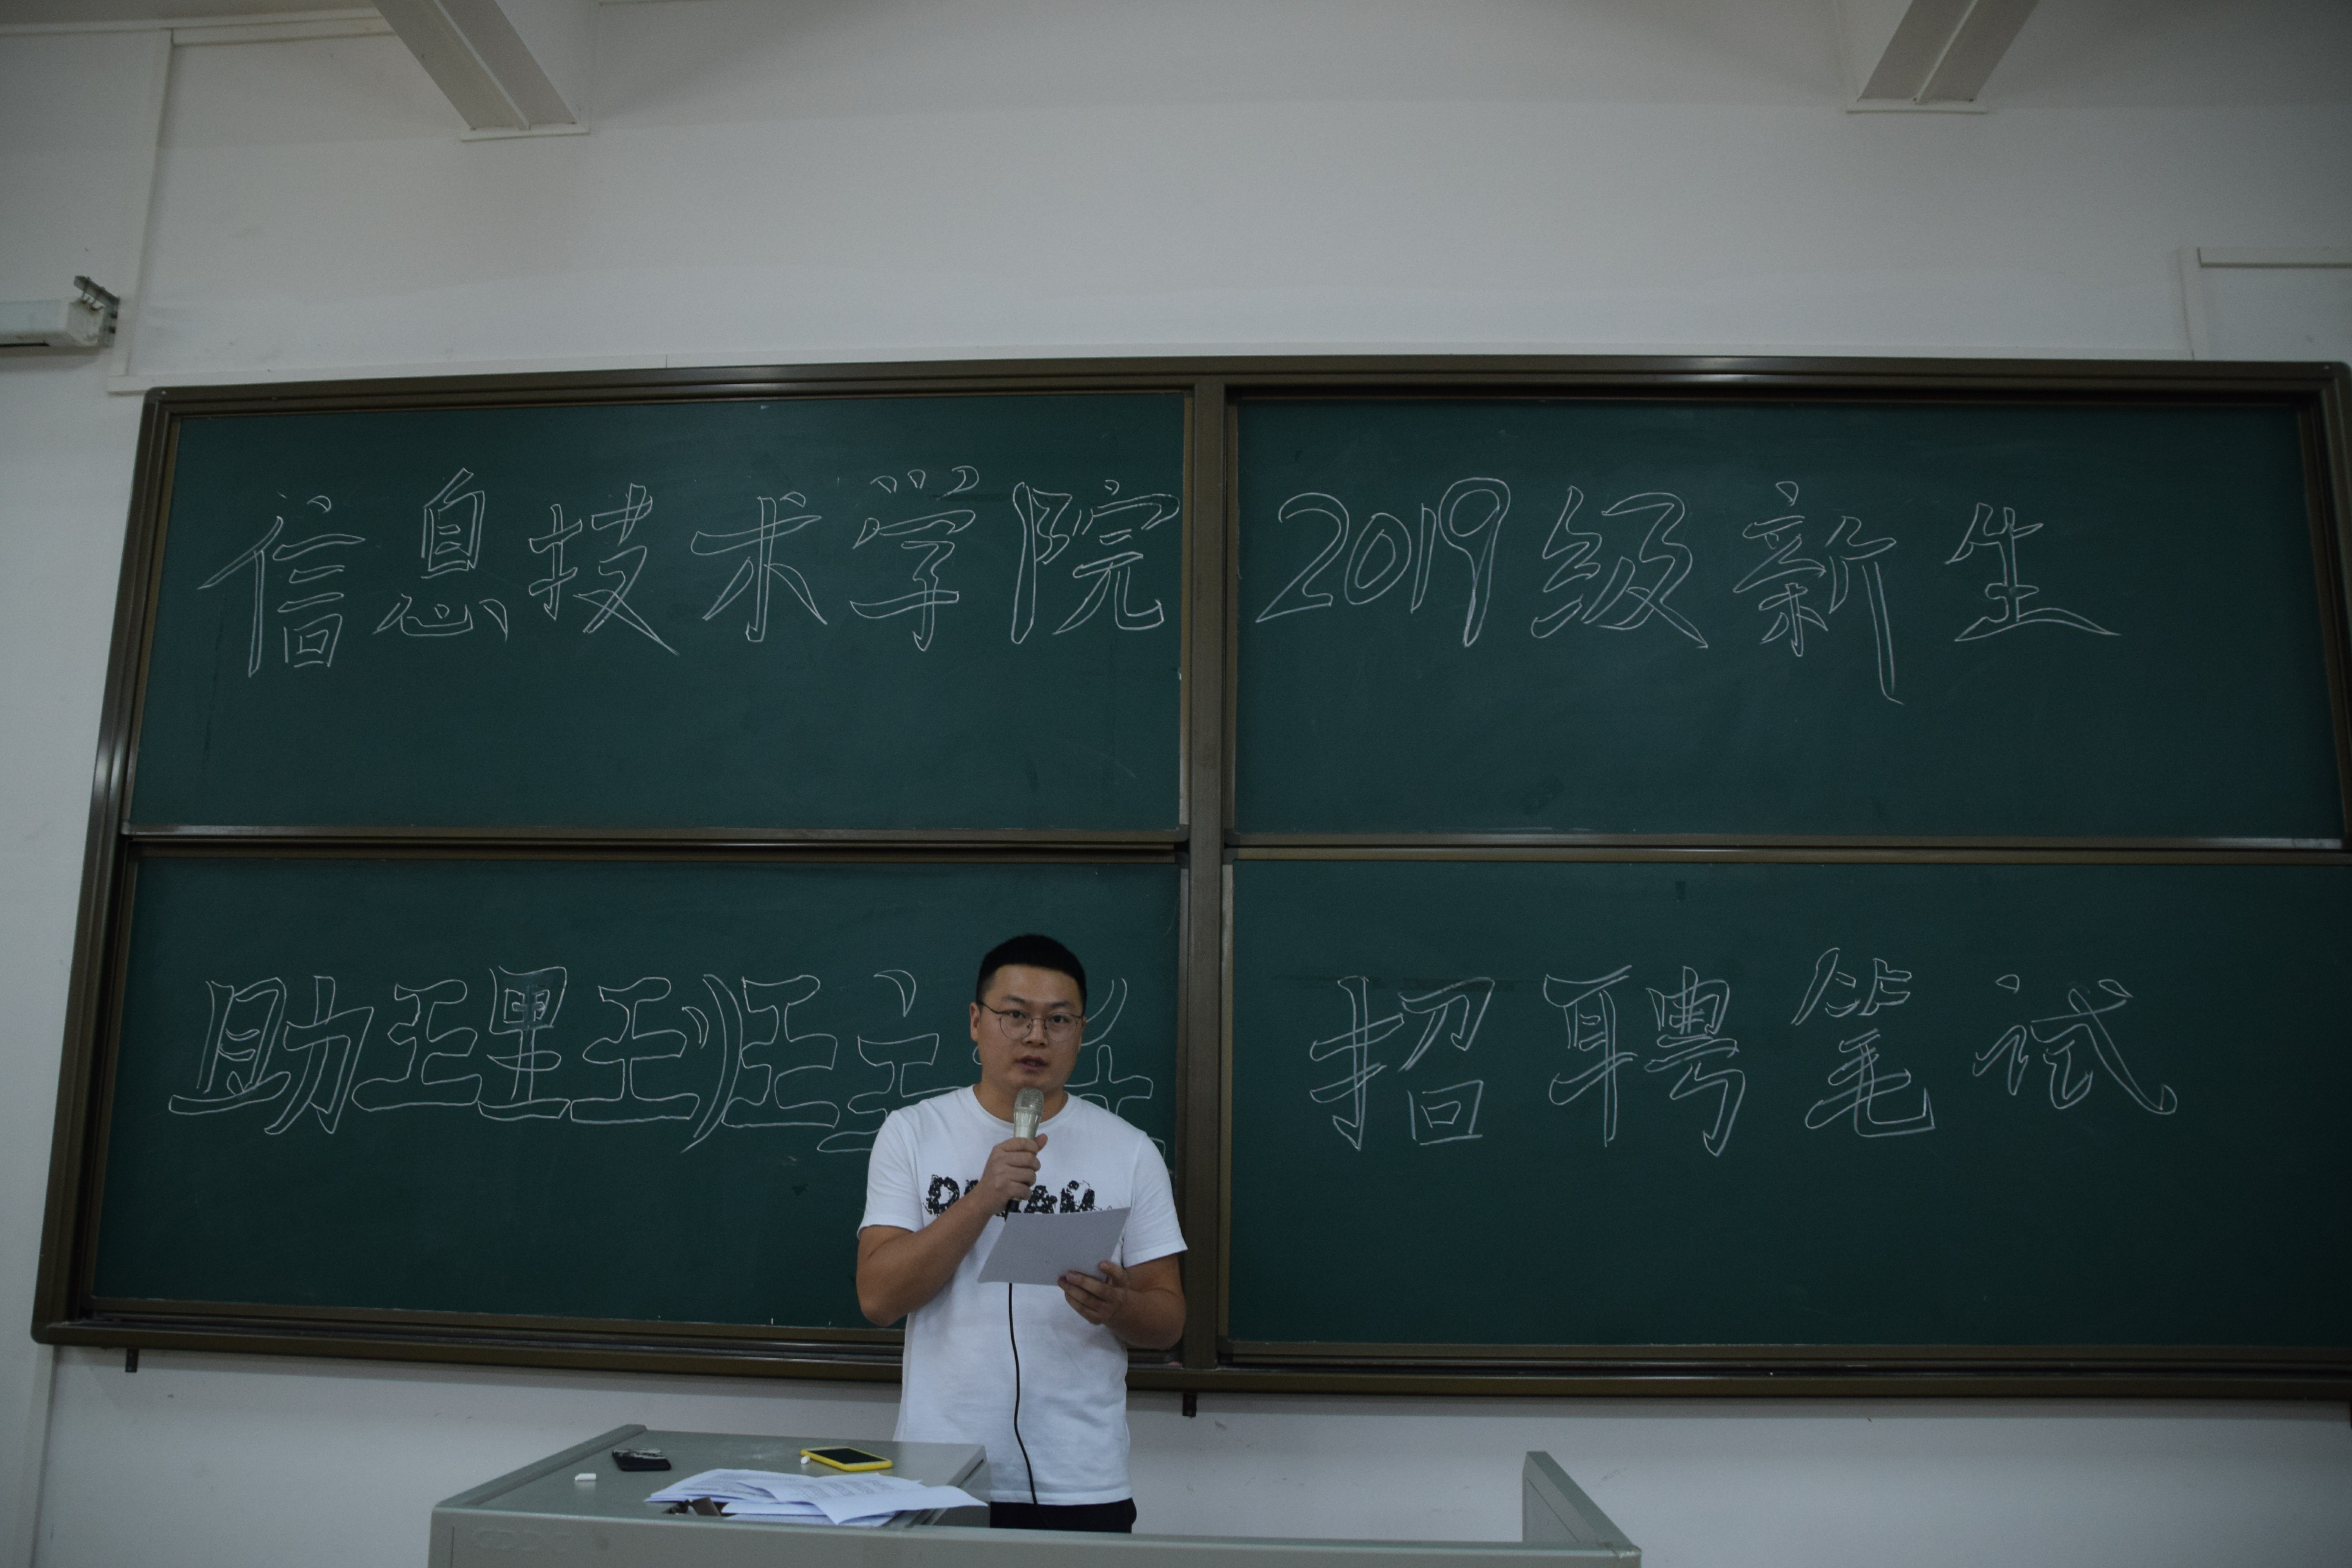 信息技术学院
2019级新生
助理班主
招聘笔试